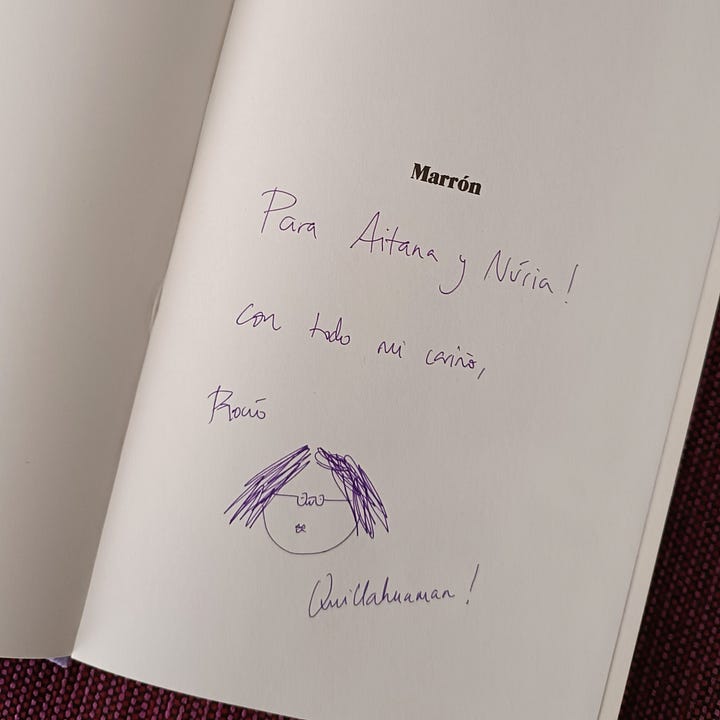 Marrón
Para Aitana y Núria!
con todo mi cariño,
Rocío
Quillahuaman!